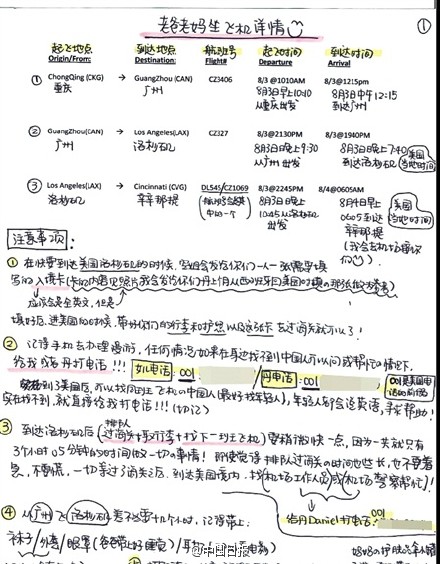 老爸老妈坐飞机详情
①
起飞地点 到达地点 航班号 起飞时间 到达时间
Origin/From: Destination: Flight# Departure Arrival
① ChongQing (CKG) → GuangZhou (CAN) CZ3406 8/3 @1010AM 8/3@1215pm
重庆 广州 8月3日早上10:10 8月3日中午12:15
从重庆出发 到达广州
② GuangZhou(CAN) → Los Angeles(LAX) CZ327 8/3@2130PM 8/3@1940PM
广州 洛杉矶 8月3日晚上9:30 8月3日晚上7:40
从广州出发 到达洛杉矶
美国当地时间
③ Los Angeles(LAX) → Cincinnati (CVG) DL545/CZ1069 8/3@2245PM 8/4@0605AM
洛杉矶 辛辛那提 8月3日晚上 8月4日早上
中的一个 10:45从洛杉矶出发 0605到达辛辛那提
美国当地时间
注意事项:
① 在快要到达美国洛杉矶的时候,空姐会发给你们一人一张需要填
写的入境卡
应该是全英文,但是
填好后,进美国的时候,带好你们的行李和护照以及这张卡去过海关就可以了!
② 记得手机去办理漫游,任何情况如果在身边找不到中国人可以问或帮忙的情况下,
给我或者丹打电话!!! 如儿电话:001 丹电话:001 001是美国电话的前缀
到美国后,可以找同班飞机的中国人(最好找年轻人),年轻人都会说英语,寻求帮助!
实在找不到,就直接给我打电话!!!(切记)
③ 到达洛杉矶后(过海关+取行李+找下一班飞机)要稍微快一点,因为一共就只有
排队
3个小时05分钟的时间做一切的事情!即使觉得排队过海关的时间也些长,也不要着
急,不要慌,一切等过了海关之后,到达美国境内,找(机场工作人员)或(机场警察帮忙)!
给丹Daniel打电话:001
④ 从广州飞洛杉矶差不多要十几个小时,记得带上:
袜子/ /眼罩(爸爸带上好睡觉)/
@中国日报